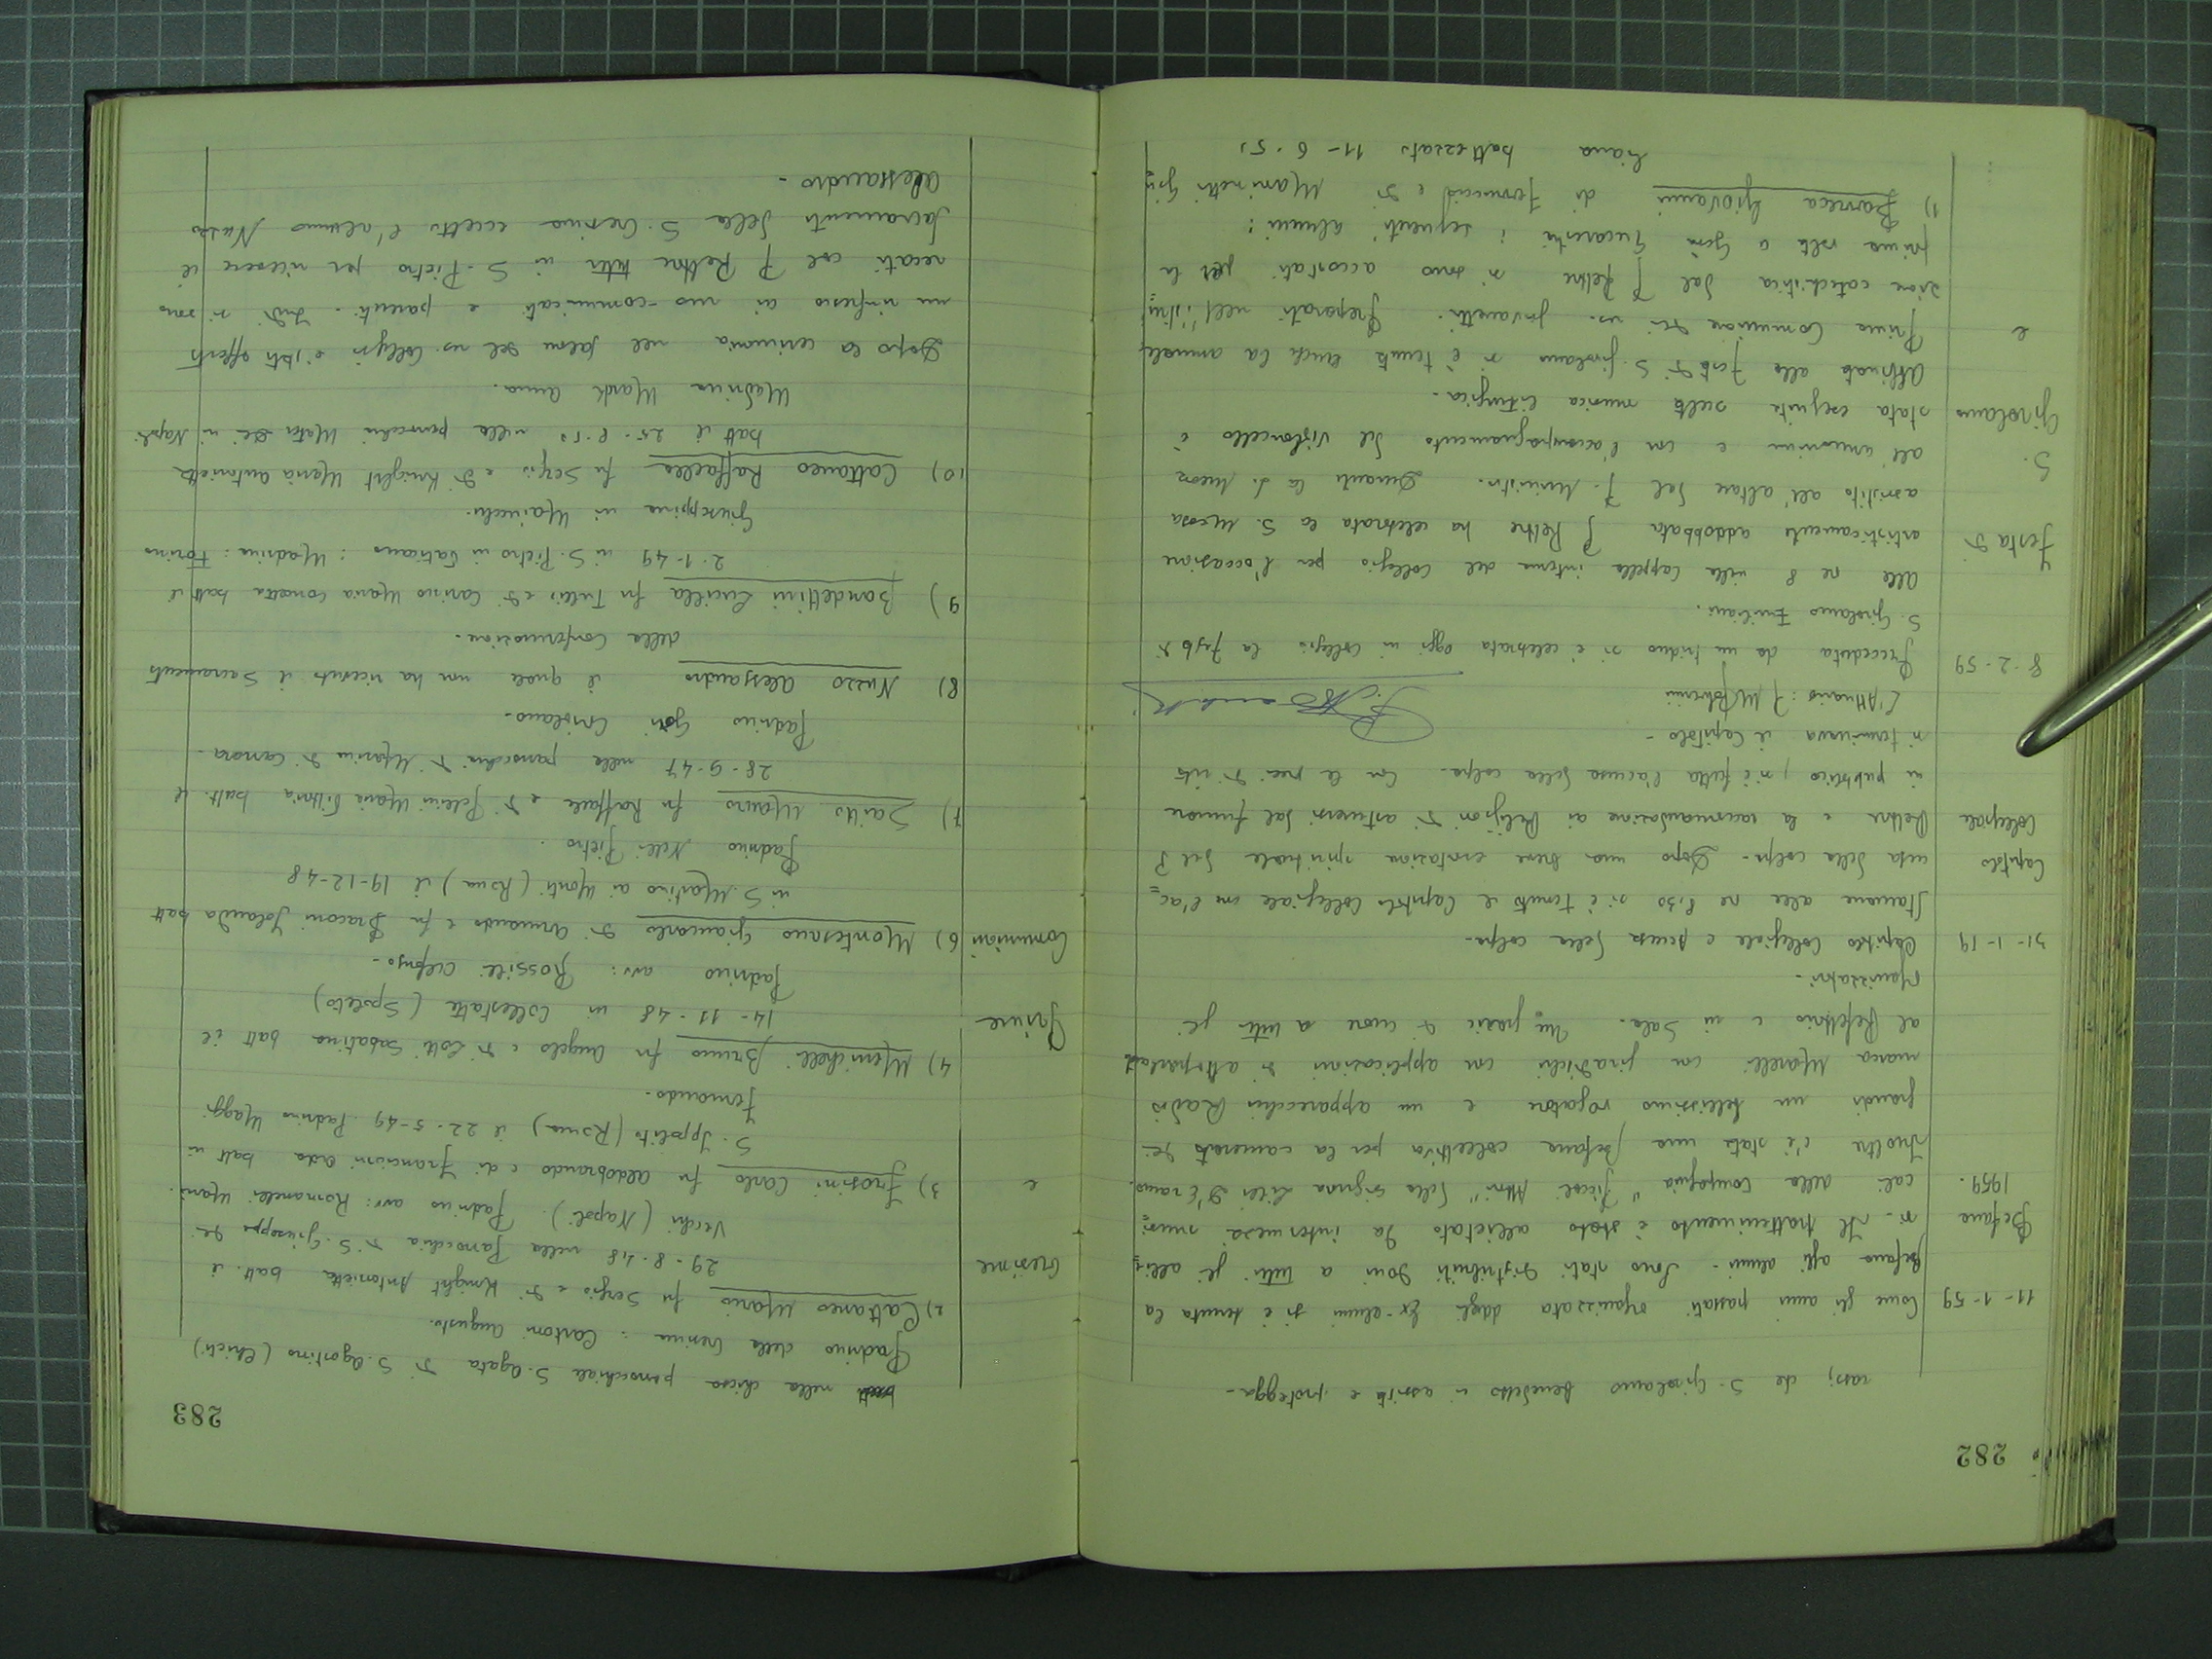 282
rossi, che S. Girolamo benedetto ci assista e protegga -
11-1-59 Come gli anni passati organizzata dagli Ex-alunni si è tenuta la
Befana agli alunni. Sono stati distribuiti doni a tutti gli allie=
Befana vi. Il trattenimento è stato allietato da intermezzi musi=
1959. cali della Compagnia "Piccoli Attori" della signora Lilli D'Eramo.
Inoltre c'è stata una befana collettiva per la camerata dei
grandi un bellissimo rogatore e un apparecchio Radio
marca Marelli con giradischi con applicazioni di altoparlanti
al Refettorio e in Sala. Un grazie di cuore a tutti gli
organizzatori.
31-1-59 Capitolo Collegiale e accusa della colpa.
Stamane alle ore 8,30 si è tenuto il Capitolo Collegiale con l'ac=
Capitolo cusa della colpa. Dopo una breve esortazione spirituale del P.
Collegiale Rettore e la raccomandazione ai Religiosi di astenersi dal fumare
in pubblico, si è fatta l'accusa della colpa. Con le preci di rito
si terminava il Capitolo -
L'Attuario: P.
8-2-59 Preceduta da un triduo si è celebrata oggi in Collegio la festa di
S. Girolamo Emiliani.
Alle ore 8 nella Cappella interna del Collegio per l'occasione
Festa di artisticamente addobbata P. Rettore ha celebrata la S. Messa
assistito all'altare dal P. Ministro. Durante la S. Messa
S. all'armonium e con l'accompagnamento del violoncello è
Girolamo stata eseguita scelta musica liturgica.
Abbinata alla festa di S. Girolamo si è tenuta anche la annuale
e Prima Comunione dei ns. giovanetti. Preparati nell'istru=
zione catechistica dal P. Rettore si sono accostati per la
prima volta a Gesù Eucarestia i seguenti alunni:
1) Barreca Giovanni di Ferruccio e di Marinetti Giu=
liana battezzato 11-6-51
283
nella chiesa parrocchiale S. Agata di S. Agostino (Chieti)
Padrino della Cresima: Cantoni Augusto.
2) Cattaneo Mario fu Sergio e di Knight Antonietta batt. il
Cresime 29-8-48 nella Parrocchia di S. Giuseppe dei
Vecchi (Napoli). Padrino avv: Romanelli Mario.
e 3) Frosini Carlo fu Aldobrando e di Francioni Ada batt in
S. Ippolito (Roma) il 22-5-49 Padrino Maggi
Fernando.
4) Menichelli Bruno fu Angelo e di Lolli Sabatina batt il
Prime 14-11-48 in Collestatte (Spoleto)
Padrino avv: Rossili Alfonso.
Comunioni 6) Montesano Giancarlo di Armando e fu Draconi Jolanda batt
in S. Martino ai Monti (Roma) il 19-12-48
Padrino Nelli Pietro.
7) Saitto Mauro fu Raffaele e di Felicini Maria Vittoria batt. il
28-9-47 nella parrocchia di Marina di Carrara.
Padrino Gori Girolamo.
8) Nuzzo Alessandro il quale non ha ricevuto il Sacramento
della Confermazione.
9) Bandettini Lucilla fu Tullio e di Canino Maria Concetta batt il
2-1-49 in S. Pietro in Vaticano: Madrina: Forino
Giuseppina in Mainella.
10) Cattaneo Raffaella fu Sergio e di Knight Maria Antonietta
batt il 25-8-50 nella parrocchia Mater Dei in Napoli
Madrina Mardi Anna.
Dopo la cerimonia nel salone del ns. Collegio è stato offerto
un rinfresco ai neo-comunicati e parenti. Indi si sono
recati col P. Rettore tutti in S. Pietro per ricevere il
sacramento della S. Cresima eccetto l'alunno Nuzzo
Alessandro -